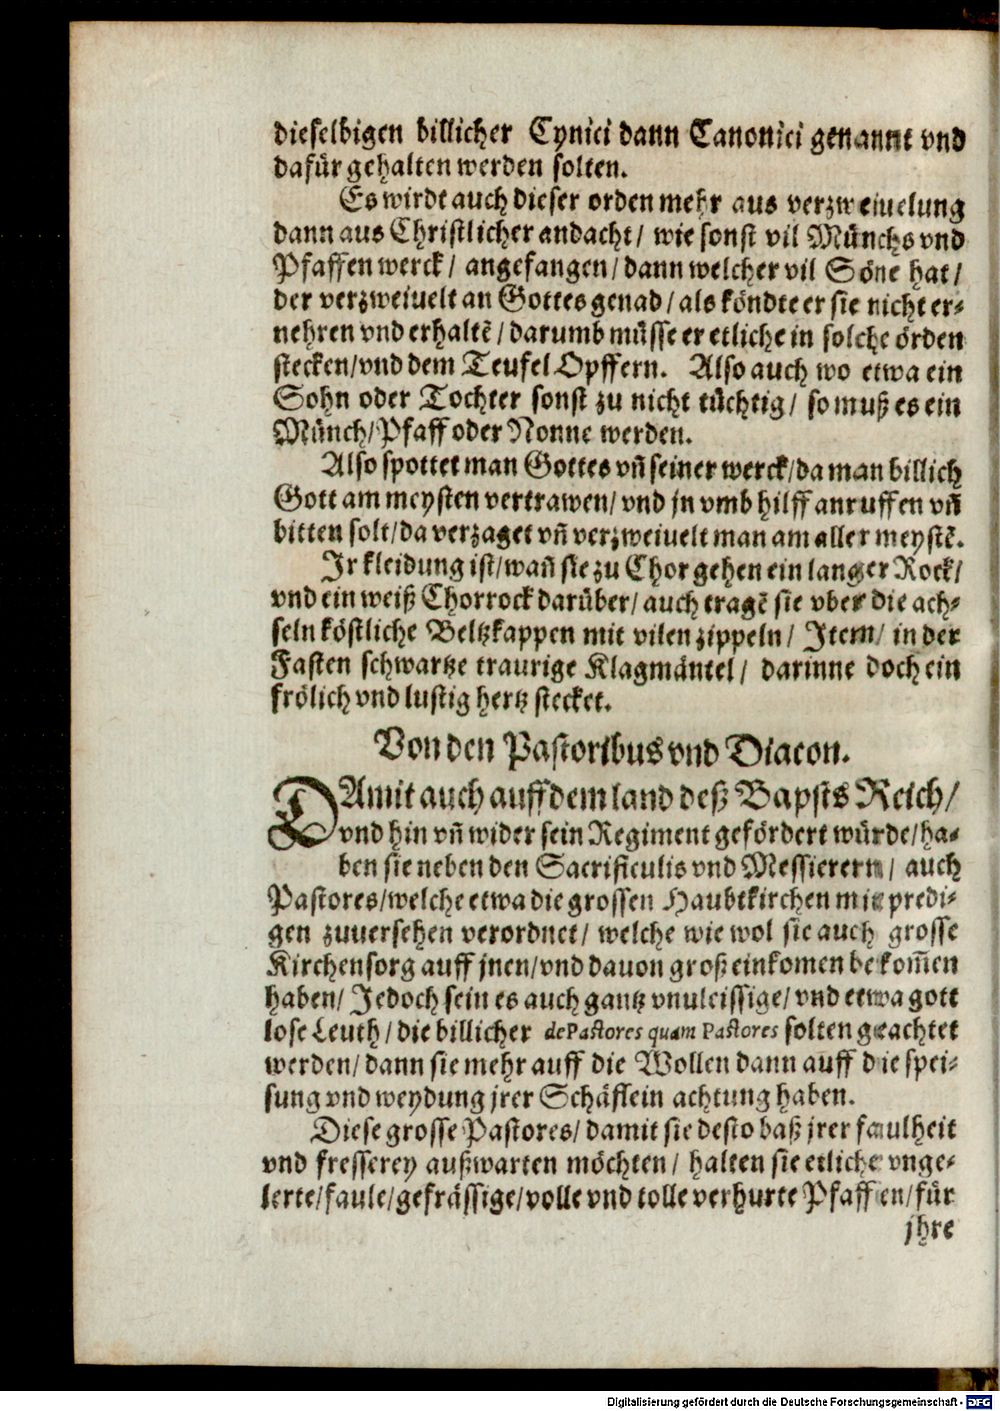 dieselbigen billicher Cynici dann Canonici genannt vnd
dafür gehalten werden solten.
Es wirdt auch dieser orden mehr aus verzweiuelung
dann aus Christlicher andacht/ wie sonst vil Münchs vnd
Pfaffen werck/ angefangen/ dann welcher vil Söne hat/
der verzweiuelt an Gottes genad/ als köndte er sie nicht er-
nehren vnd erhaltẽ/ darumb müsse er etliche in solche örden
stecken/ vnd dem Teufel Opffern. Also auch wo etwa ein
Sohn oder Tochter sonst zu nicht tüchtig/ so muß es ein
Münch/ Pfaff oder Nonne werden.
Also spottet man Gottes vñ seiner werck/ da man billich
Gott am meysten vertrawen/ vnd jn vmb hilff anruffen vñ
bitten solt/ da verzaget vñ verzweiuelt man am aller meystẽ.
Jr kleidung ist/ wañ sie zu Chor gehen ein langer Rock/
vnd ein weiß Chorrock darüber/ auch tragẽ sie vber die ach-
seln köstliche Beltzkappen mit vilen zippeln/ Item/ in der
Fasten schwartze traurige Klagmäntel/ darinne doch ein
frölich vnd lustig hertz stecket.
Von den Pastoribus vnd Diacon.
DAmit auch auff dem land deß Bapsts Reich/
vnd hin vñ wider sein Regiment gefördert würde/ ha-
ben sie neben den Sacrificulis vnd Messierern/ auch
Pastores/ welche etwa die grossen Haubtkirchen mit predi-
gen zuuersehen verordnet/ welche wie wol sie auch grosse
Kirchensorg auff jnen/ vnd dauon groß einkomen bekom̃en
haben/ Jedoch sein es auch gantz vnuleissige/ vnd etwa gott
lose Leuth/ die billicher dePastores quam Pastores solten geachtet
werden/ dann sie mehr auff die Wollen dann auff die spei-
sung vnd weydung jrer Schäflein achtung haben.
Diese grosse Pastores/ damit sie desto baß jrer faulheit
vnd fresserey außwarten möchten/ halten sie etliche vnge-
lerte/ faule/ gefrässige/ volle vnd tolle verhurte Pfaffen/ für
jhre
Digitalisierung gefördert durch die Deutsche Forschungsgemeinschaft - DFG